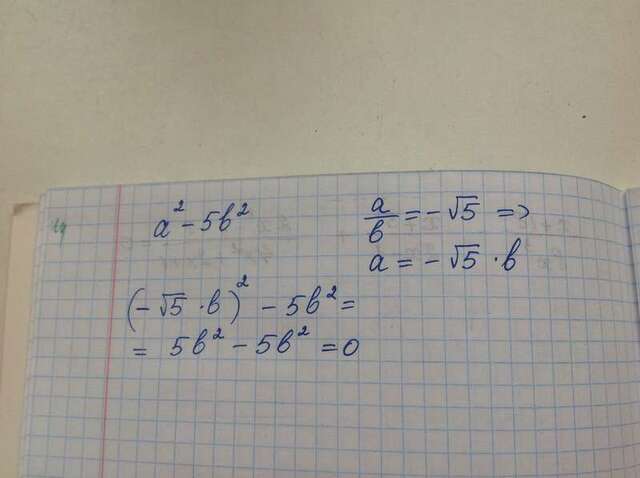 a² - 5b²
a/b = -√5 =>
a = -√5 · b
(-√5 · b)² - 5b² =
= 5b² - 5b² = 0